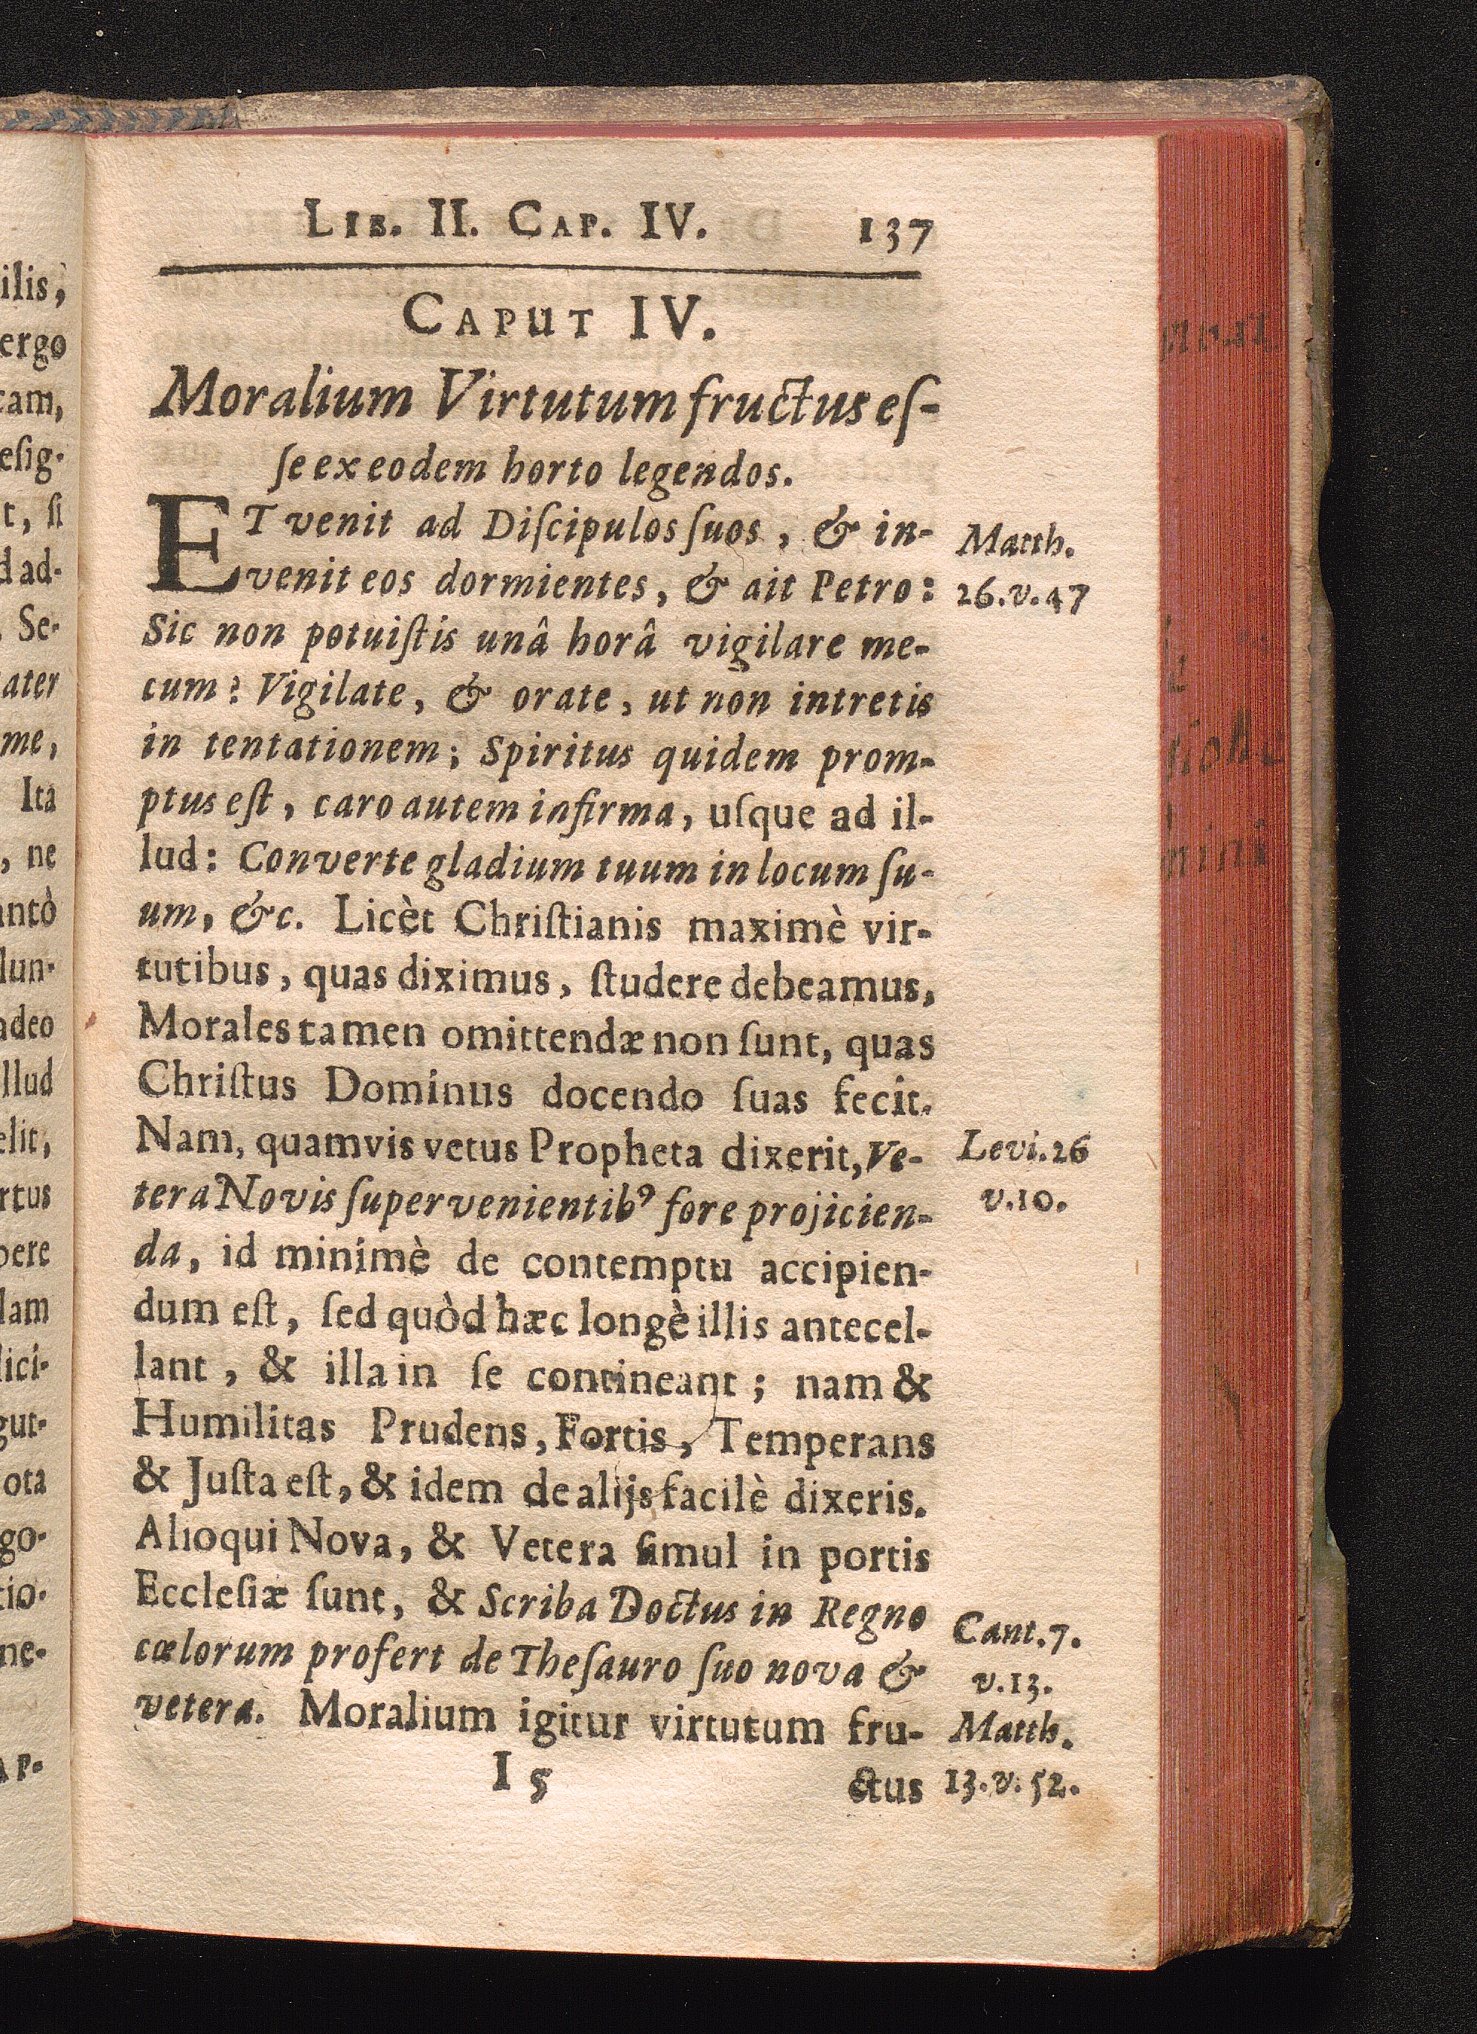 ilis,
ergo
cam,
eſig-
t, ſi
d ad-
. Se-
ater
me,
Ita
, ne
antò
lun-
adeo
llud
elit,
rtus
pere
lam
lici-
gut-
ota
go-
tio-
ne-
AP-
LIB. II. CAP. IV. 137
CAPUT IV.
Moralium Virtutum fructus eſ-
ſe ex eodem horto legendos.
ET venit ad Diſcipulos ſuos, & in-
venit eos dormientes, & ait Petro:
Matth.
26.v.47
Sic non potuiſtis unâ horâ vigilare me-
cum? Vigilate, & orate, ut non intretis
in tentationem; Spiritus quidem prom-
ptus eſt, caro autem infirma, uſque ad il-
lud: Converte gladium tuum in locum ſu-
um, &c. Licèt Chriſtianis maximè vir-
tutibus, quas diximus, ſtudere debeamus,
Morales tamen omittendæ non ſunt, quas
Chriſtus Dominus docendo ſuas fecit.
Nam, quamvis vetus Propheta dixerit, Ve-
tera Novis ſupervenientibꝰ fore projicien-
Levi.26
v.10.
da, id minimè de contemptu accipien-
dum eſt, ſed quòd hæc longè illis antecel-
lant, & illa in ſe contineant; nam &
Humilitas Prudens, Fortis, Temperans
& Juſta eſt, & idem de alijs facilè dixeris.
Alioqui Nova, & Vetera ſimul in portis
Eccleſiæ ſunt, & Scriba Doctus in Regno
cœlorum profert de Theſauro ſuo nova &
vetera. Moralium igitur virtutum fru-
Cant.7.
v.13.
Matth.
13.v.52.
I 5
ctus